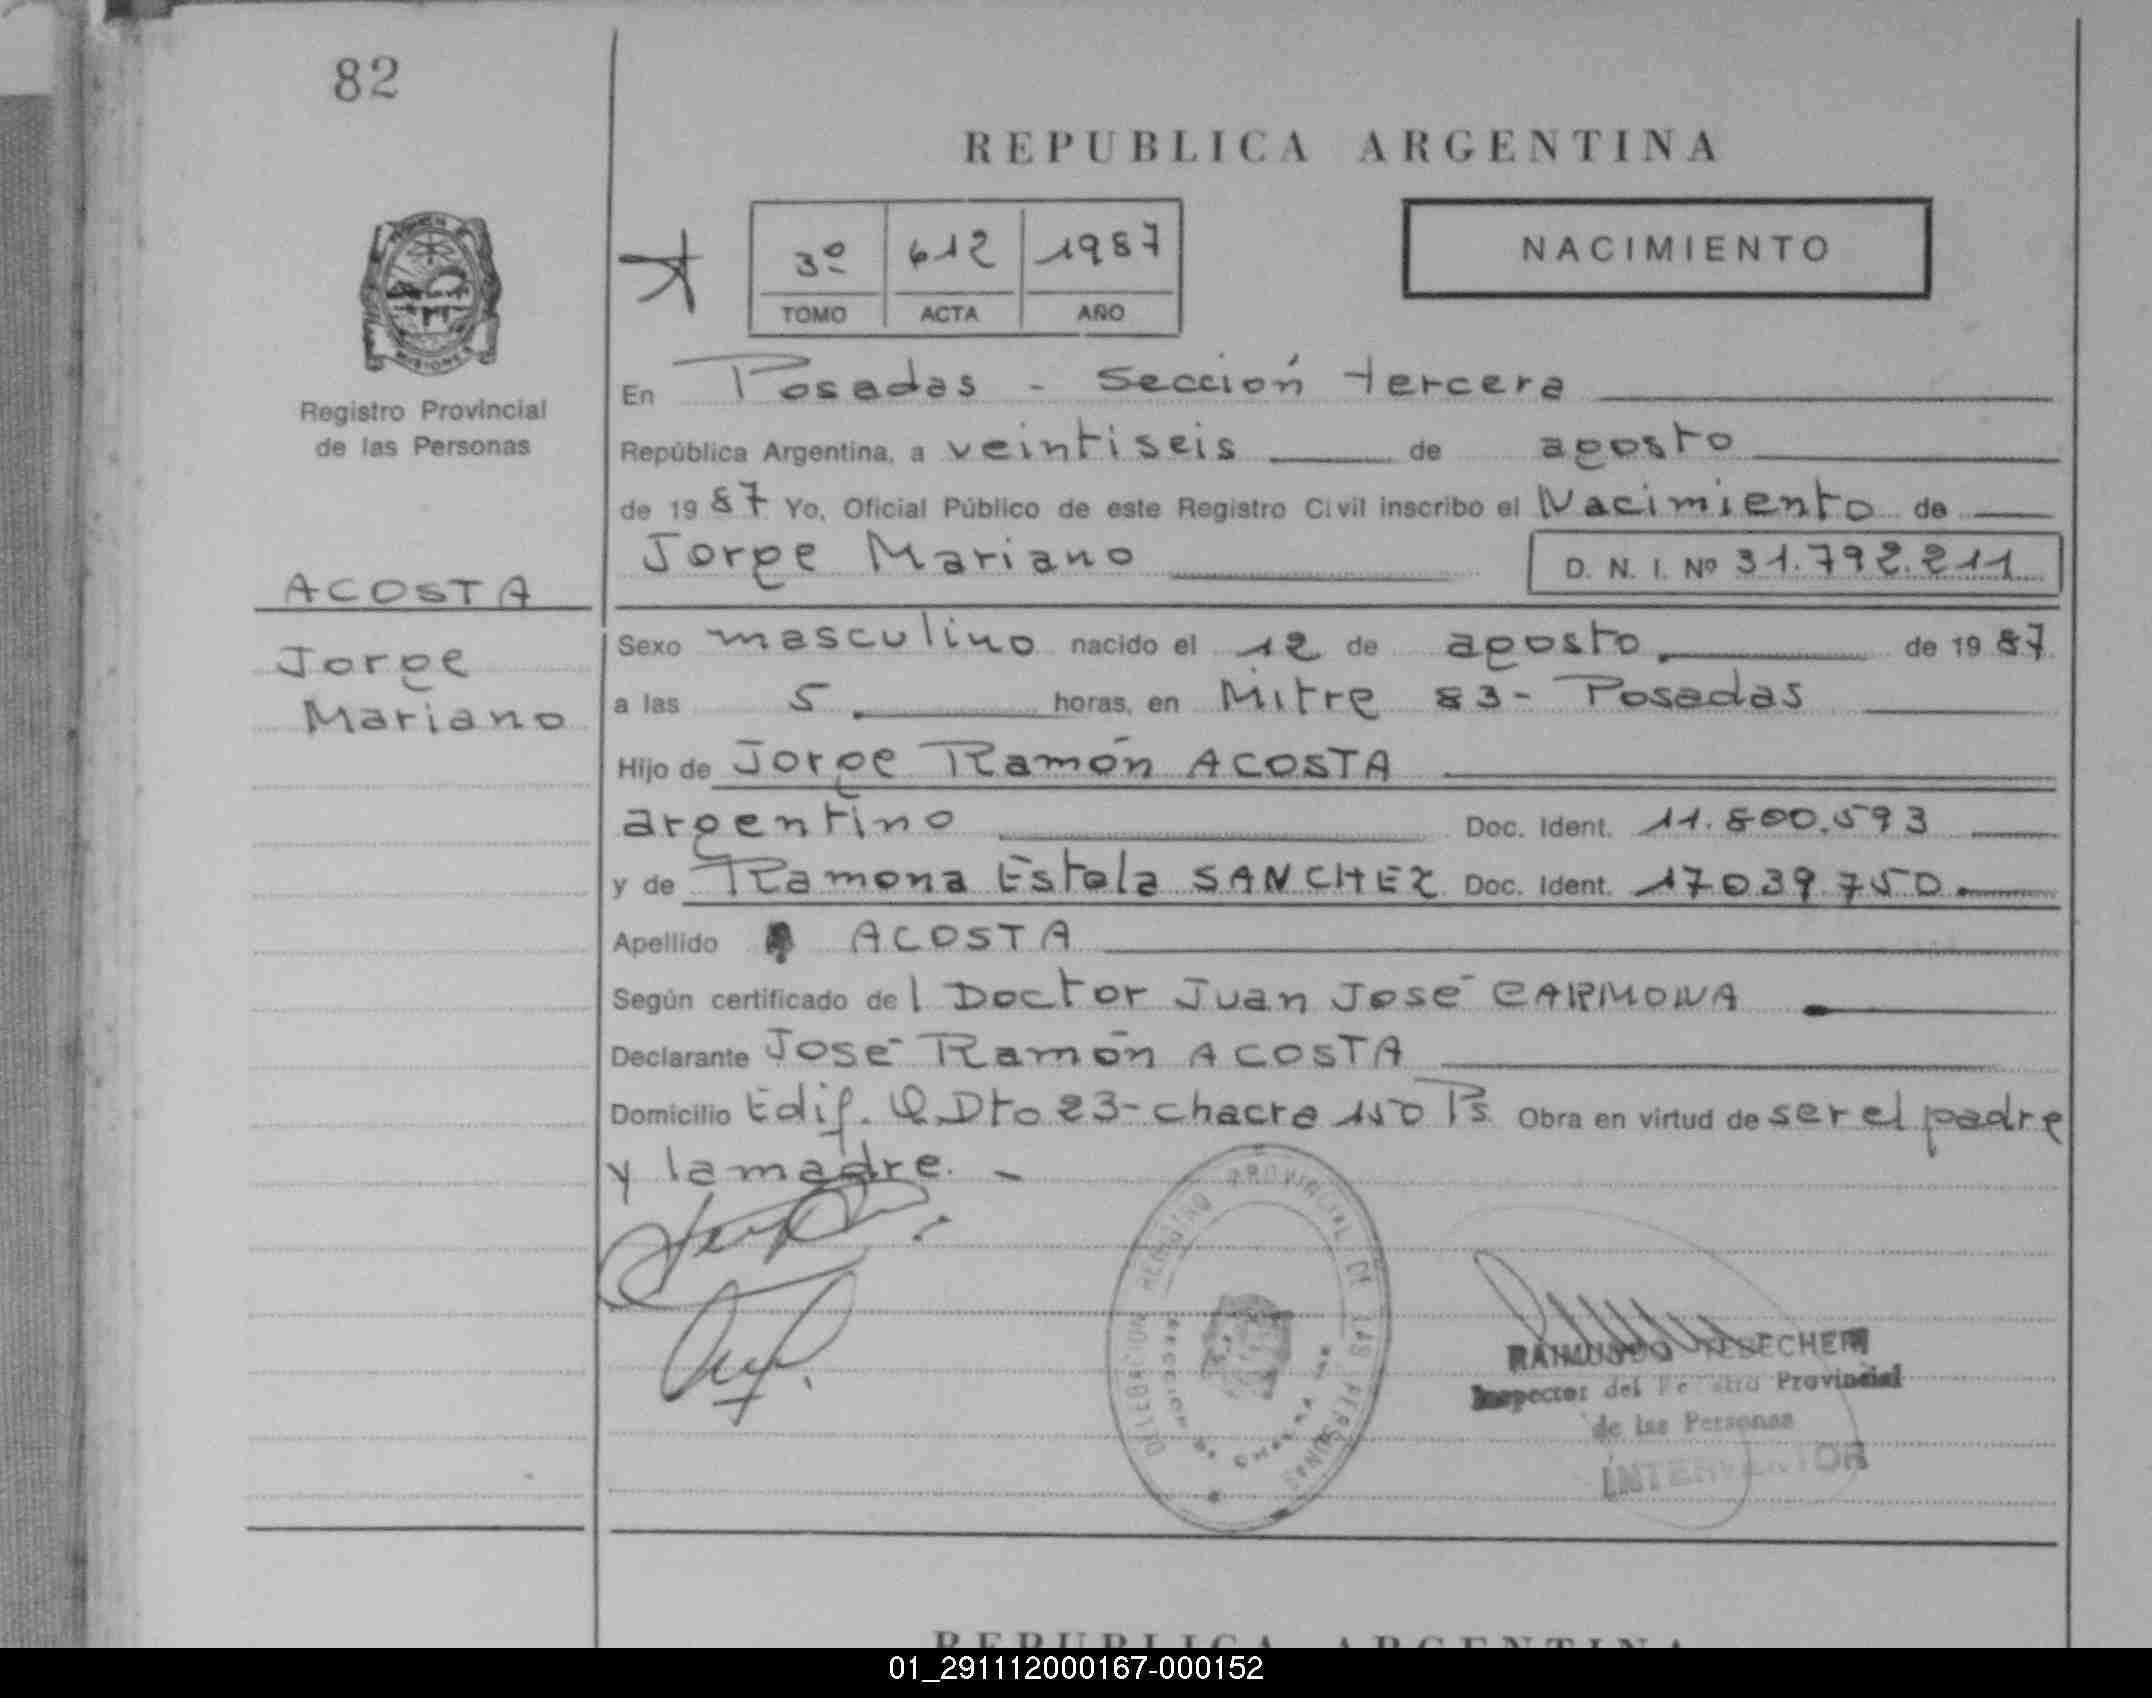 82
REPUBLICA ARGENTINA
3º 612 1987
TOMO ACTA AÑO
NACIMIENTO
MISIONES
Registro Provincial
de las Personas
ACOSTA
Jorge
Mariano
En Posadas - Sección tercera
República Argentina, a veintiseis de agosto
de 1987 Yo, Oficial Público de este Registro Civil inscribo el Nacimiento de
Jorge Mariano D. N. I. Nº 31.792.211
Sexo masculino nacido el 12 de agosto de 1987
a las 5 horas, en Mitre 83 - Posadas
Hijo de Jorge Ramón ACOSTA
argentino Doc. Ident. 11.800.593
y de Ramona Estela SANCHEZ Doc. Ident. 17039750.
Apellido ACOSTA
Según certificado del Doctor Juan José CARMONA
Declarante José Ramón ACOSTA
Domicilio Edif. Q Dto 23 - chacra 150 Ps. Obra en virtud de ser el padre
y la madre. -
DELEGACION REGISTRO PROVINCIAL DE LAS PERSONAS
RAIMUNDO
Inspector del Registro Provincial
de las Personas
INTERVENTOR
REPUBLICA ARGENTINA
01_291112000167-000152